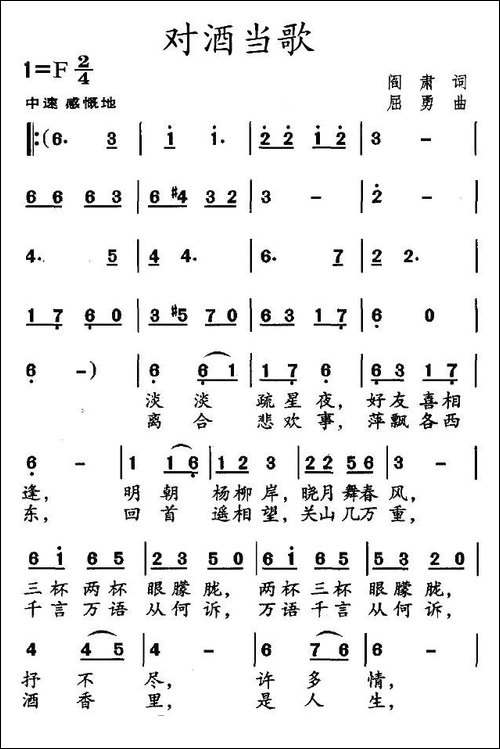 对酒当歌
1=F 2/4
阎 肃 词
中速 感慨地
屈 勇 曲
‖:(6. 3 | i i. | 2 2 i 2 | 3 - |
6 6 6 3 | 6 #4 3 2 | 3 - | 2 - |
4. 5 | 4 4. | 6. 7 | 2 2. |
1 7 6 0 | 3 #5 7 0 | 6 3 1 7 | 6 0 |
6 -) | 6 6 1 | 1 7 6 | 6 3 1 7 |
淡 淡 疏 星 夜, 好 友 喜 相
离 合 悲 欢 事, 萍 飘 各 西
6 - | 1 1 6 | 1 2 3 | 2 2 5 6 | 3 - |
逢, 明 朝 杨 柳 岸, 晓 月 舞 春 风,
东, 回 首 遥 相 望, 关 山 几 万 重,
6 i 6 5 | 2 3 5 0 | 6 i 6 5 | 2 3 5 0 |
三 杯 两 杯 眼 朦 胧, 两 杯 三 杯 眼 朦 胧,
千 言 万 语 从 何 诉, 万 语 千 言 从 何 诉,
4 4 5 | 4 - | 6 6 5 | 6 - |
抒 不 尽, 许 多 情,
酒 香 里, 是 人 生,